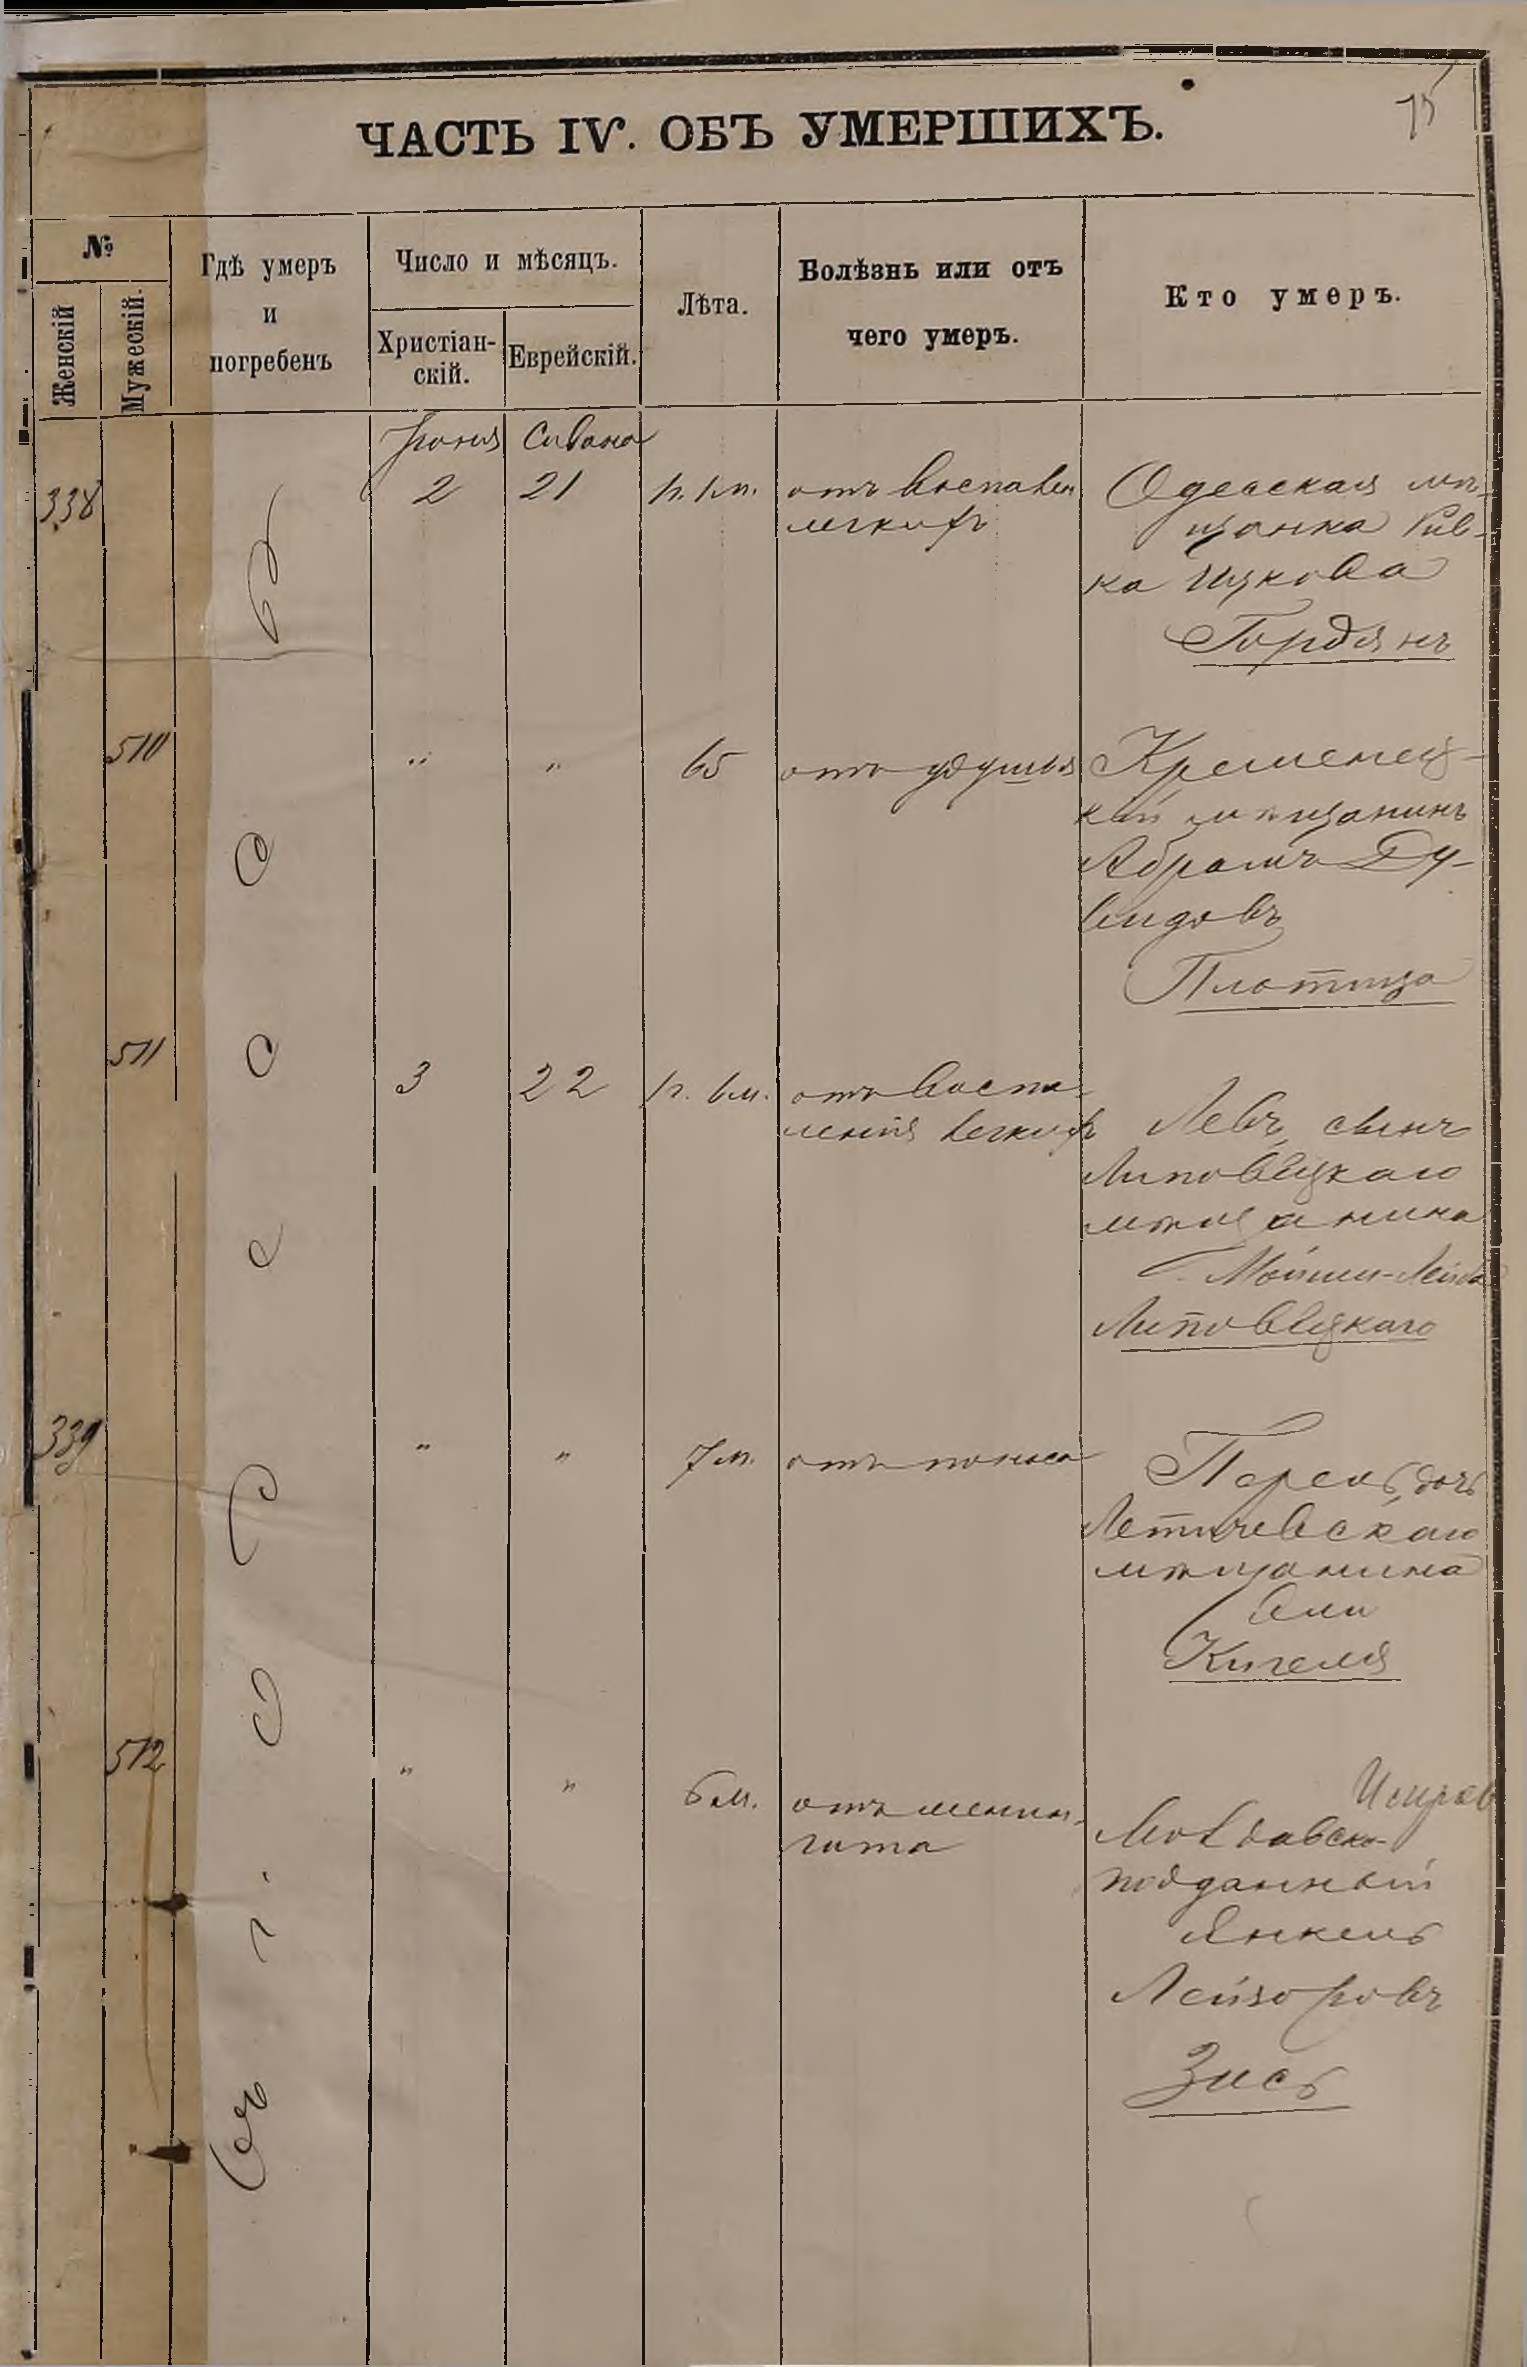 75
ЧАСТЬ IV. ОБЪ УМЕРШИХЪ.
№
Женскій
Мужескій.
Гдѣ умеръ
и
погребенъ
Число и мѣсяцъ.
Христіан-
скій.
Еврейскій.
Лѣта.
Болѣзнь или отъ
чего умеръ.
Кто умеръ.
въ г. Одессѣ
Іюня Сивана
338 2 21 1г. 1м. отъ воспален
легкихъ
Одесская мѣ-
щанка Рив-
ка Ицкова
Гордянъ
510 " " 65 отъ удушья
Кременец-
кій мѣщанинъ
Абрамъ Ду-
видовъ
Плотица
511 3 22 1г. 6м. отъ воспа-
ленія легкихъ
Левъ, сынъ
Липовецкаго
мѣщанина
Мойши-Лейба
Липовецкаго
339 " " 7м. отъ поноса
Перель, дочь
Летичевскаго
мѣщанина
Кигеля
512 " " 6м. отъ менин-
гита
Молдавско-
подданный
Янкель
Лейзоровъ
Зись